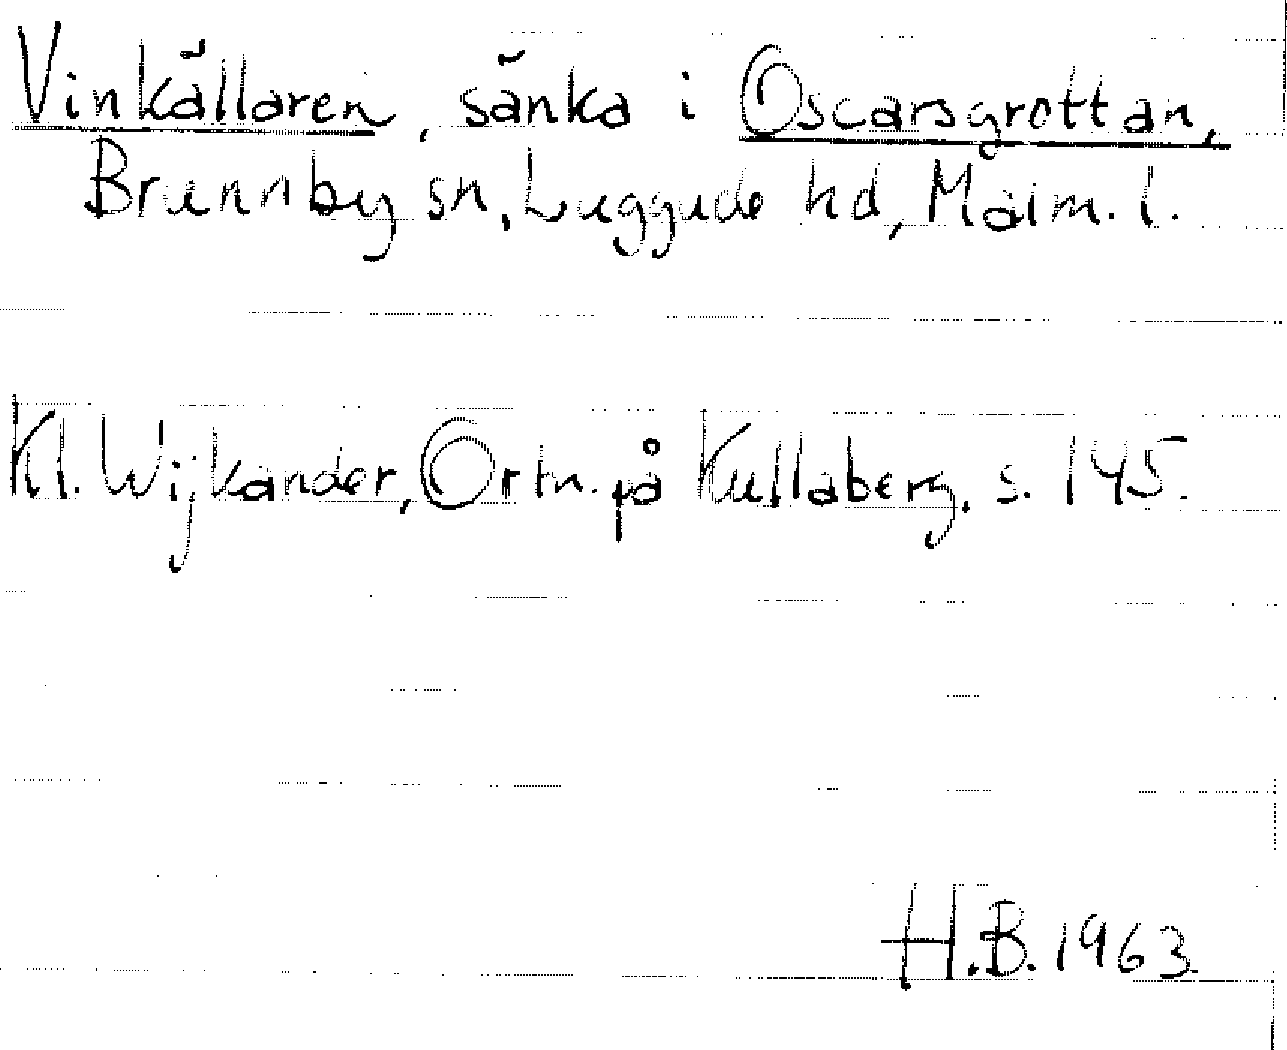 Vinkällaren, sänka i Oscarsgrottan,
Brunnby sn, Luggude hd, Malm. l.
Kl. Wijkander, Ortn. på Kullaberg, s. 145.
H.B. 1963.